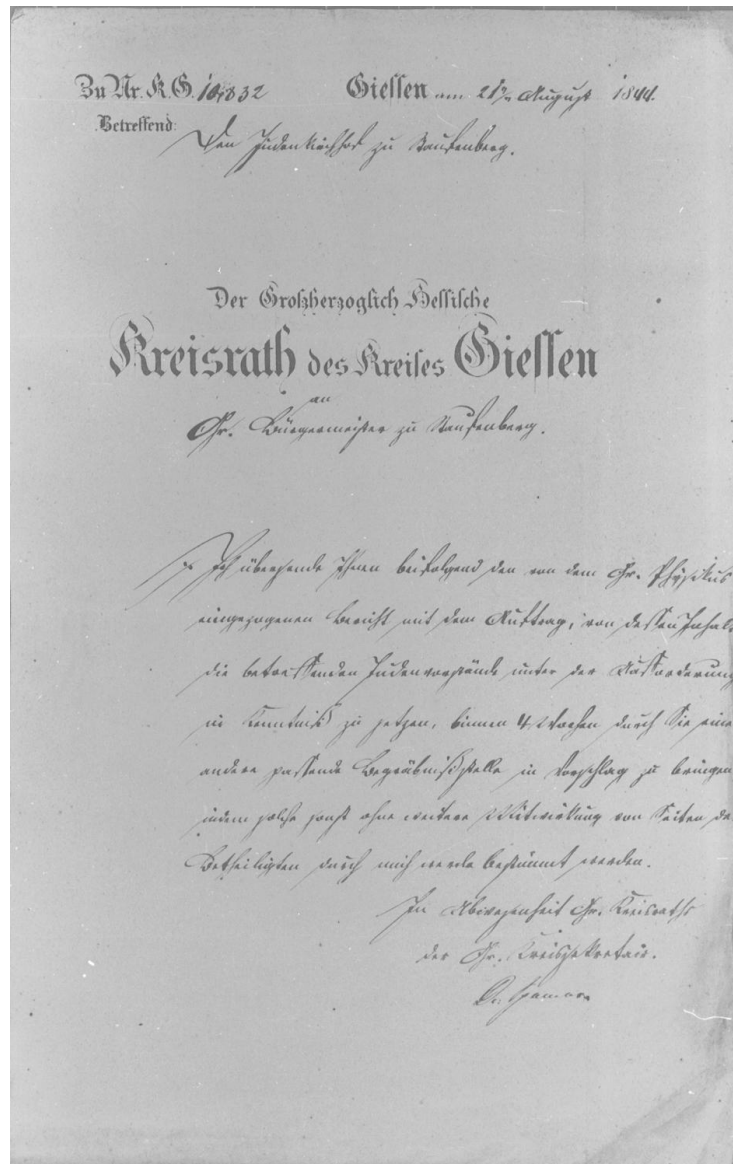 Zu Nr. K. G. 10,832 Giessen am 21ten August 1844.
Betreffend: Den Judenkirchhof zu Staufenberg.
Der Großherzoglich Hessische
Kreisrath des Kreises Giessen
an
Gr. Bürgermeister zu Staufenberg.
Ich übersende Ihnen beifolgend den von dem Gr. Physikus
eingezogenen Bericht mit dem Auftrag, von dessen Inhalt
die betreffenden Judenvorstände unter der Aufforderung
in Kenntniß zu setzen, binnen 4 Wochen durch Sie eine
andere passende Begräbnißstelle in Vorschlag zu bringen
indem solche sonst ohne weitere Mitwirkung von Seiten der
Betheiligten durch mich werde bestimmt werden.
In Abwesenheit Gr. Kreisraths
der Gr. Kreissekretair.
Dr. Spamer